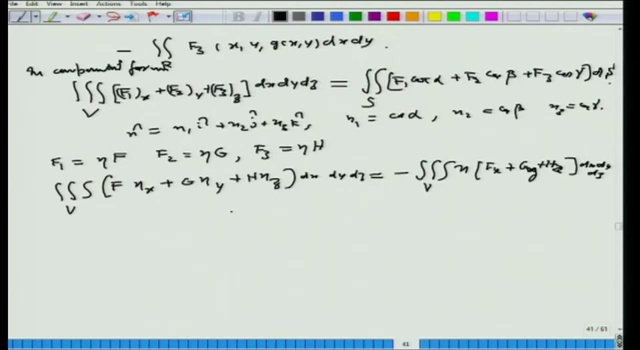 File Edit View Insert Actions Tools Help
− ∬ F₃ (x, y, g(x,y)) dx dy.
In component form R
∭ [(F₁)ₓ + (F₂)ᵧ + (F₃)_z] dx dy dz = ∬ [F₁ cos α + F₂ cos β + F₃ cos γ] dβ
V S
n̂ = n₁ î + n₂ ĵ + n₃ k̂, n₁ = cos α, n₂ = cos β n₃ = cos γ.
F₁ = ηF F₂ = ηG, F₃ = ηH
∭ (F ηₓ + G ηᵧ + H η_z) dx dy dz = − ∭ η [Fₓ + Gᵧ + H_z] dx dy dz
V V
41 / 61
41